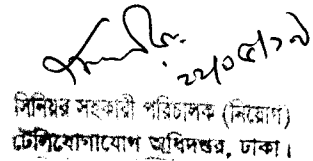 ২২/০৫/১৭
সিনিয়র সহকারী পরিচালক (নিয়োগ)
টেলিযোগাযোগ অধিদপ্তর, ঢাকা।